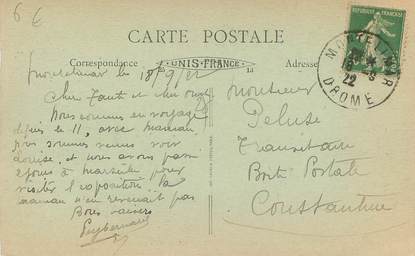 6 €
CARTE POSTALE
Correspondance
UNIS-FRANCE
Adresse
REPUBLIQUE FRANÇAISE
MONTELIMAR
18 -8
22
DROME
Montelimar le 18/9/22
Cher Tante et cher oncle
Nous sommes en voyage
depuis le 11, avec maman
nous sommes venus voir
Louise, et nous avons passé
2 jours à Marseille pour
visiter l'exposition. la
maman n'en revenait pas
Bons baisers
Monsieur
Peluse
Transitaire
Boite Postale
Constantine